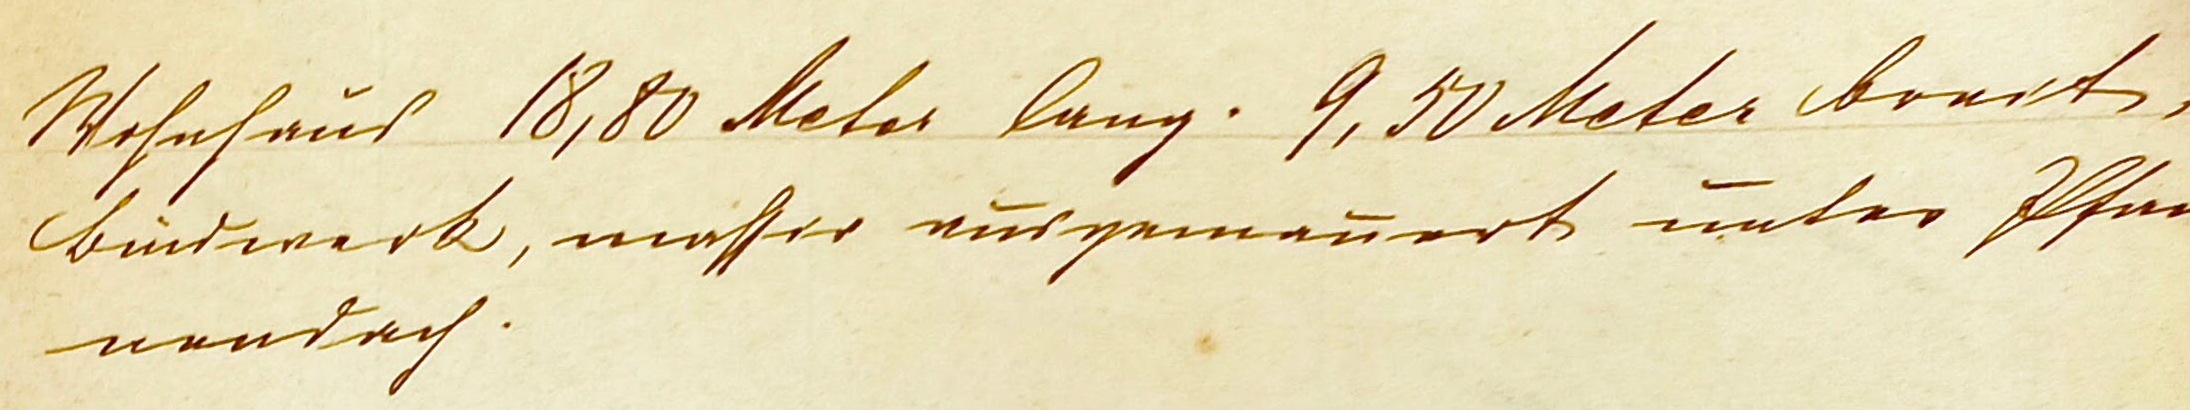 Wohnhaus 18,80 Meter lang. 9,50 Meter breit,
Bindwerk, massiv ausgemauert unter Pfan
nendach.